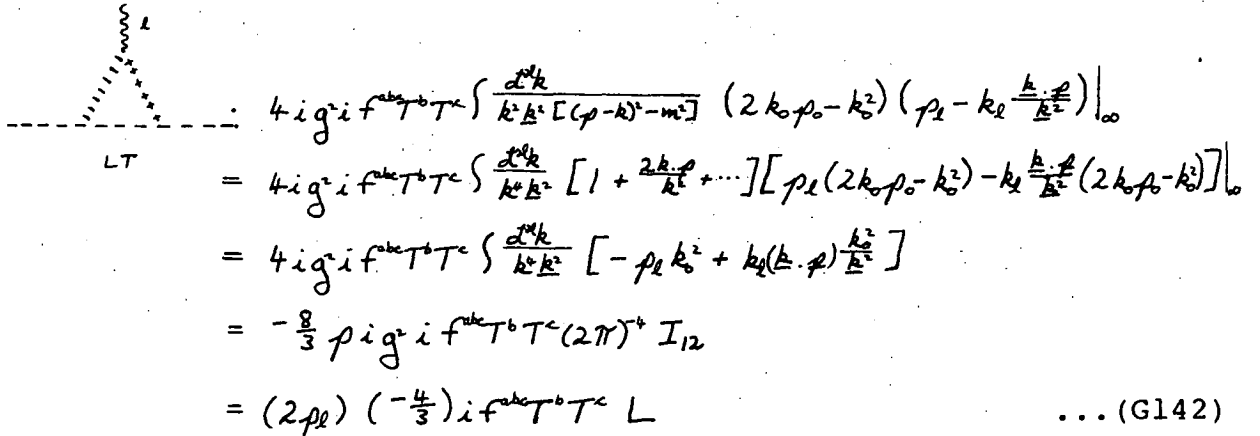 l
: 4 i g² i f^{abc} T^b T^c ∫ \frac{d^{2l}k}{k² \underline{k}² [(p-k)² - m²]} (2k₀p₀ - k₀²) (p_l - k_l \frac{\underline{k}·\underline{p}}{\underline{k}²})|_∞
LT
= 4 i g² i f^{abc} T^b T^c ∫ \frac{d^{2l}k}{k⁴ \underline{k}²} [1 + \frac{2k·p}{k²} + ⋯] [p_l (2k₀p₀ - k₀²) - k_l \frac{\underline{k}·\underline{p}}{\underline{k}²} (2k₀p₀ - k₀²)]|_∞
= 4 i g² i f^{abc} T^b T^c ∫ \frac{d^{2l}k}{k⁴ \underline{k}²} [-p_l k₀² + k_l (\underline{k}·\underline{p}) \frac{k₀²}{\underline{k}²}]
= -\frac{8}{3} p i g² i f^{abc} T^b T^c (2π)^{-4} I₁₂
= (2p_l) (-\frac{4}{3}) i f^{abc} T^b T^c L ...(G142)